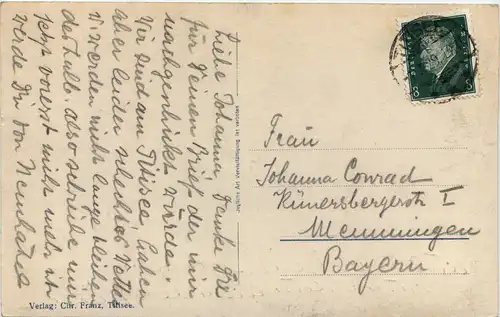 Liebe Johanna! Danke Dir
für Deinen Brief der mir
nachgeschickt wurde.
Wir sind am Titisee haben
aber leider schlechtes Wetter
Wir werden nicht lange bleiben
deshalb also schreibe mir
jetzt vorerst nicht mehr ich
werde Dir von
Frau
Johanna Conrad
Künersbergerstr I
Memmingen
Bayern
3 3
Verlag: Chr. Franz, Titisee.